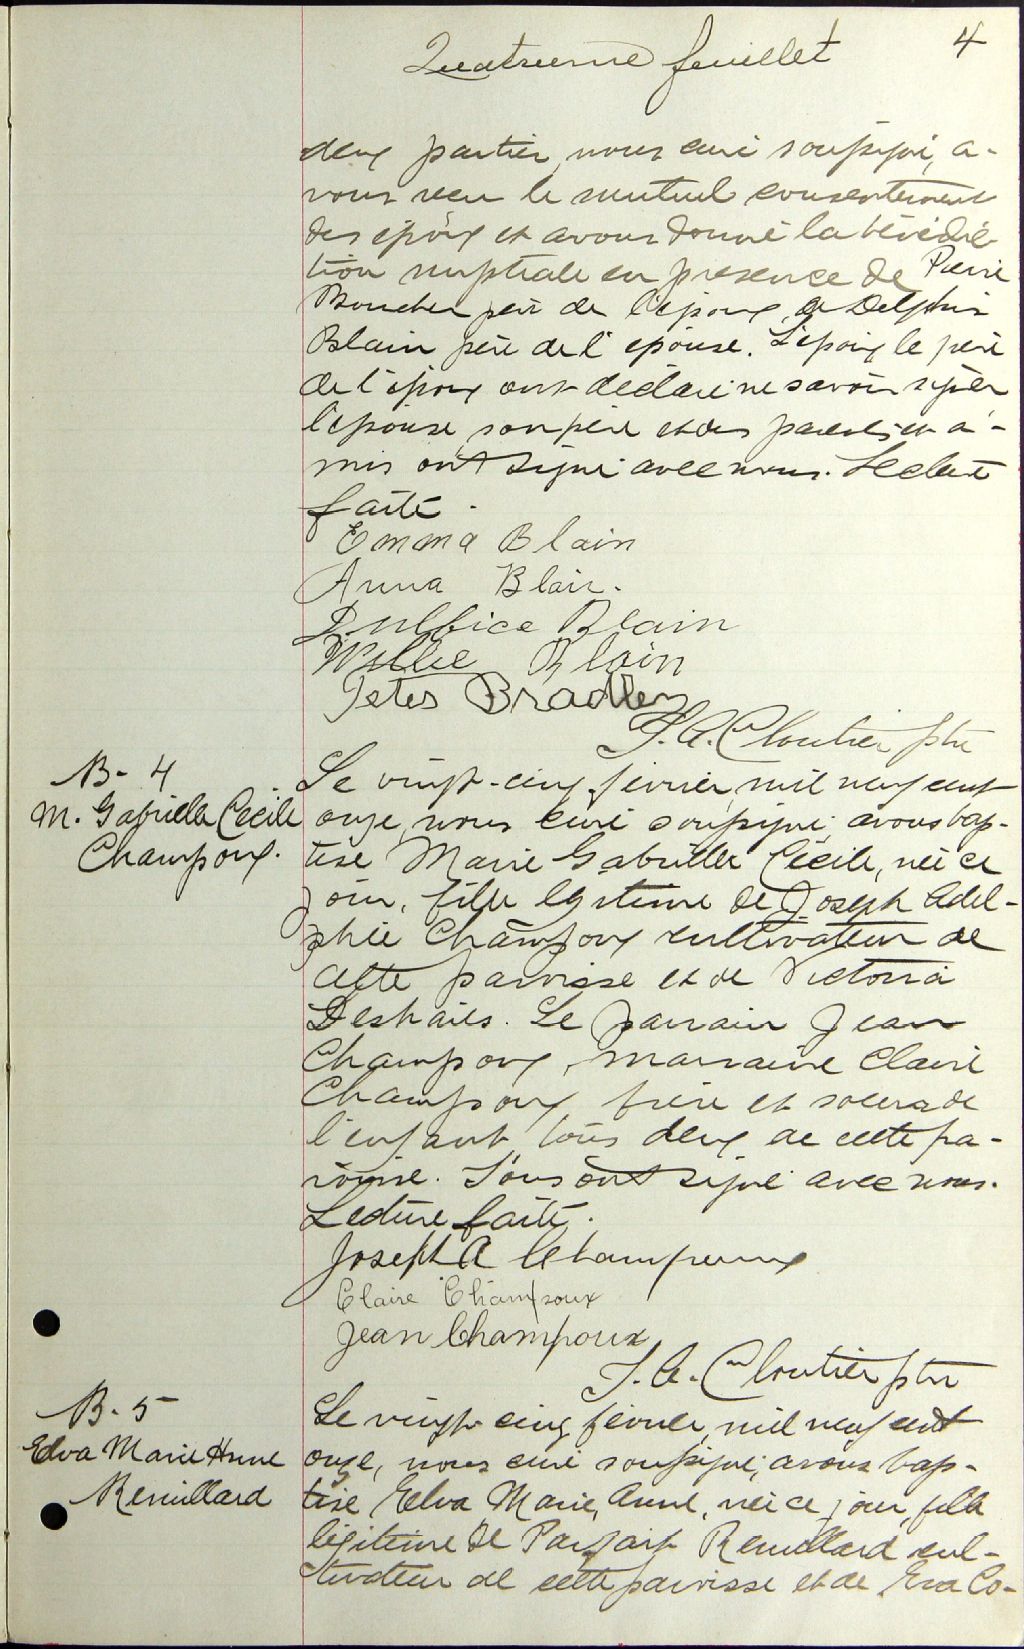 Quatrieme feuillet
4
deux parties, nous curé soussigné, a-
vons recu le mutuel consentement
des époux et avons donné la bénédic
tion nuptiale en presence de Pierre
Boucher père de l'époux, de Delphis
Blain père de l'épouse. L'époux le père
de l'époux ont déclaré ne savoir signer
l'épouse son père et des parents et a-
mis ont signé avec nous. Lecture
faite.
Emma Blain
Anna Blain.
Blain
Willie Blain
Petes Bradley
J. A. Cloutier ptre
B- 4
M. Gabrielle Cecile
Champoux.
Le vingt-cinq fevrier, mil neuf cent
onze, nous curé soussigné, avons bap-
tisé Marie Gabrielle Cécile, née ce
jour, fille légitime de Joseph Adel-
phée Champoux cultivateur de
cette paroisse et de Victoria
Deshaies. Le parrain Jean
Champoux, marraine Claire
Champoux frère et soeur de
l'enfant, tous deux de cette pa-
roisse. Tous ont signé avec nous.
Lecture faite.
Joseph A Champoux
Claire Champoux
Jean Champoux
J. A. Cloutier ptre
B- 5
Elva Marie Anne
Remillard
Le vingt cinq fevrier, mil neuf cent
onze, nous curé soussigné, avons bap-
tisé Elva Marie Anne, née ce jour, fille
légitime de Parfait Remillard cul-
tivateur de cette paroisse et de Eva Co-